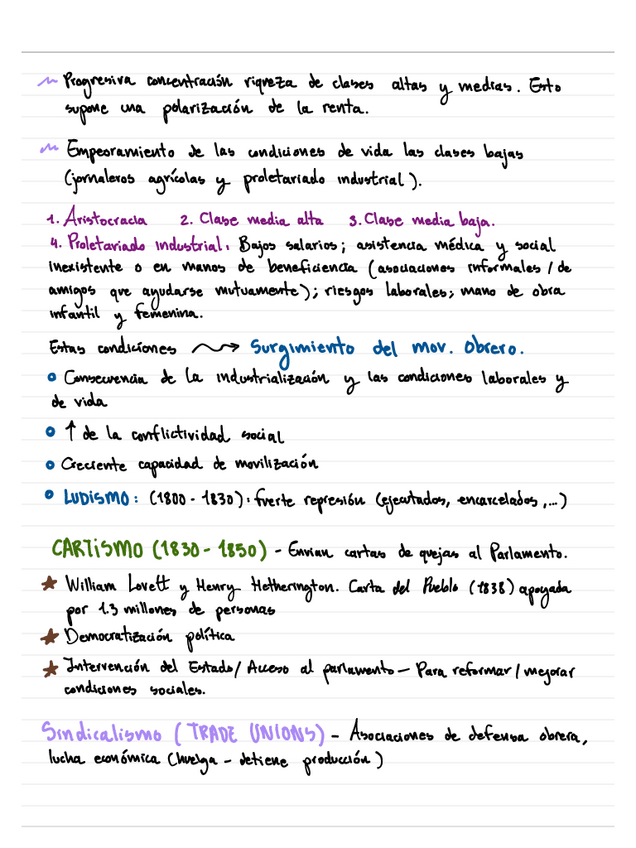 Progresiva concentración riqueza de clases altas y medias. Esto
supone una polarización de la renta.
Empeoramiento de las condiciones de vida las clases bajas
(jornaleros agrícolas y proletariado industrial).
1. Aristocracia 2. Clase media alta 3. Clase media baja.
4. Proletariado industrial: Bajos salarios; asistencia médica y social
inexistente o en manos de beneficiencia (asociaciones informales / de
amigos que ayudarse mutuamente); riesgos laborales; mano de obra
infantil y femenina.
Estas condiciones → Surgimiento del mov. Obrero.
Consecuencia de la industrialización y las condiciones laborales y
de vida
↑ de la conflictividad social
Creciente capacidad de movilización
LUDISMO: (1800 - 1830): fuerte represión (ejecutados, encarcelados,...)
CARTISMO (1830 - 1850) - Envían cartas de quejas al Parlamento.
William Lovett y Henry Hetherington. Carta del Pueblo (1838) apoyada
por 1.3 millones de personas
Democratización política
Intervención del Estado/ Acceso al parlamento - Para reformar / mejorar
condiciones sociales.
Sindicalismo (TRADE UNIONS) - Asociaciones de defensa obrera,
lucha económica (huelga - detiene producción)